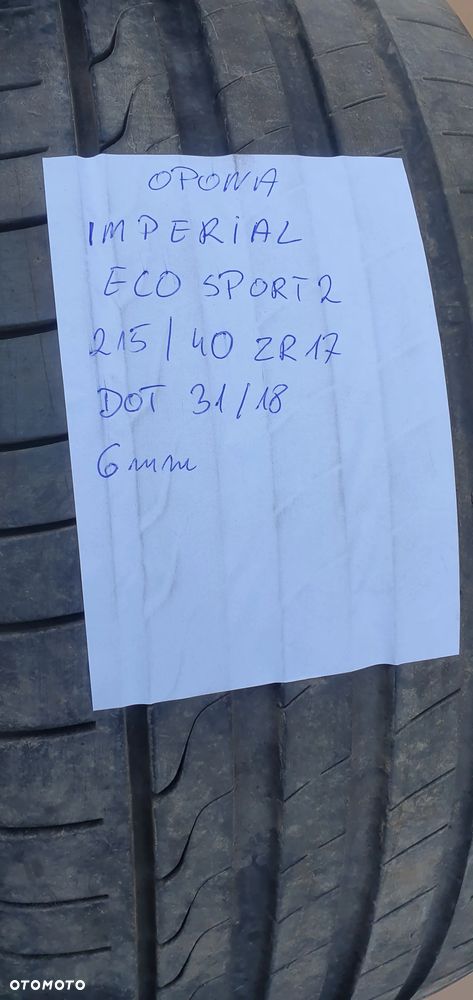 OPONA
IMPERIAL
ECO SPORT2
215/40 ZR17
DOT 31/18
6mm
OTOMOTO